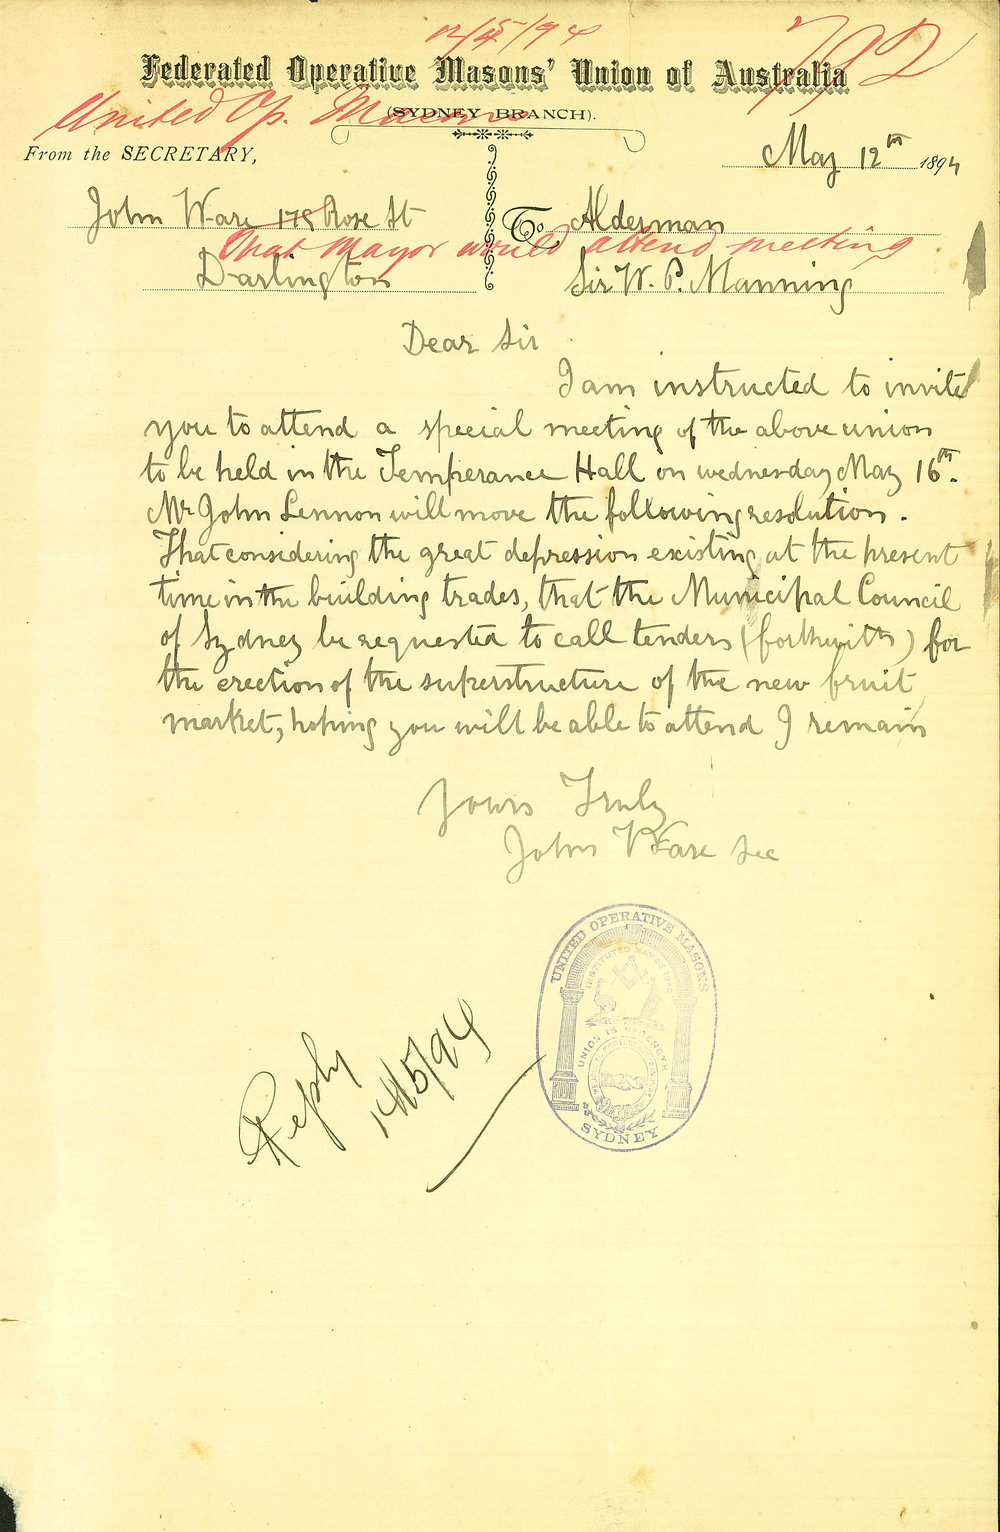 12/5/94
792
Federated Operative Masons' Union of Australia
United Op. Masons
(SYDNEY BRANCH).
From the SECRETARY,
May 12th 1894
John Ware 175 Rose St
To Alderman
that Mayor would attend meeting
Darlington
Sir W. P. Manning
Dear Sir
I am instructed to invite
you to attend a special meeting of the above union
to be held in the Temperance Hall on wednesday May 16th.
Mr John Lennon will move the following resolution.
That considering the great depression existing at the present
time in the building trades, that the Municipal Council
of Sydney be requested to call tenders (forthwith) for
the erection of the superstructure of the new fruit
market, hoping you will be able to attend I remain
Yours Truly
John Ware Sec
UNITED OPERATIVE MASONS
INSTITUTED MAY
UNION IS STRENGTH
SYDNEY
Reply
14/5/94